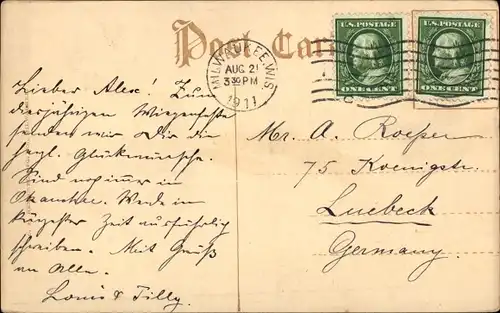 Post Card
MILWAUKEE, WIS.
AUG 21
3 30 PM
1911
U.S. POSTAGE
ONE CENT
U.S. POSTAGE
ONE CENT
Lieber Alex! Zum
diesjährigen Wiegenfeste
senden wir Dir die
herzl. Glückwünsche.
Sind noch immer in
Okauchee. Werde in
kürzester Zeit ausführlich
schreiben. Mit Gruß
an Alle.
Louis & Tilly.
Mr. A.
75 Koenigstr.
Luebeck
Germany.